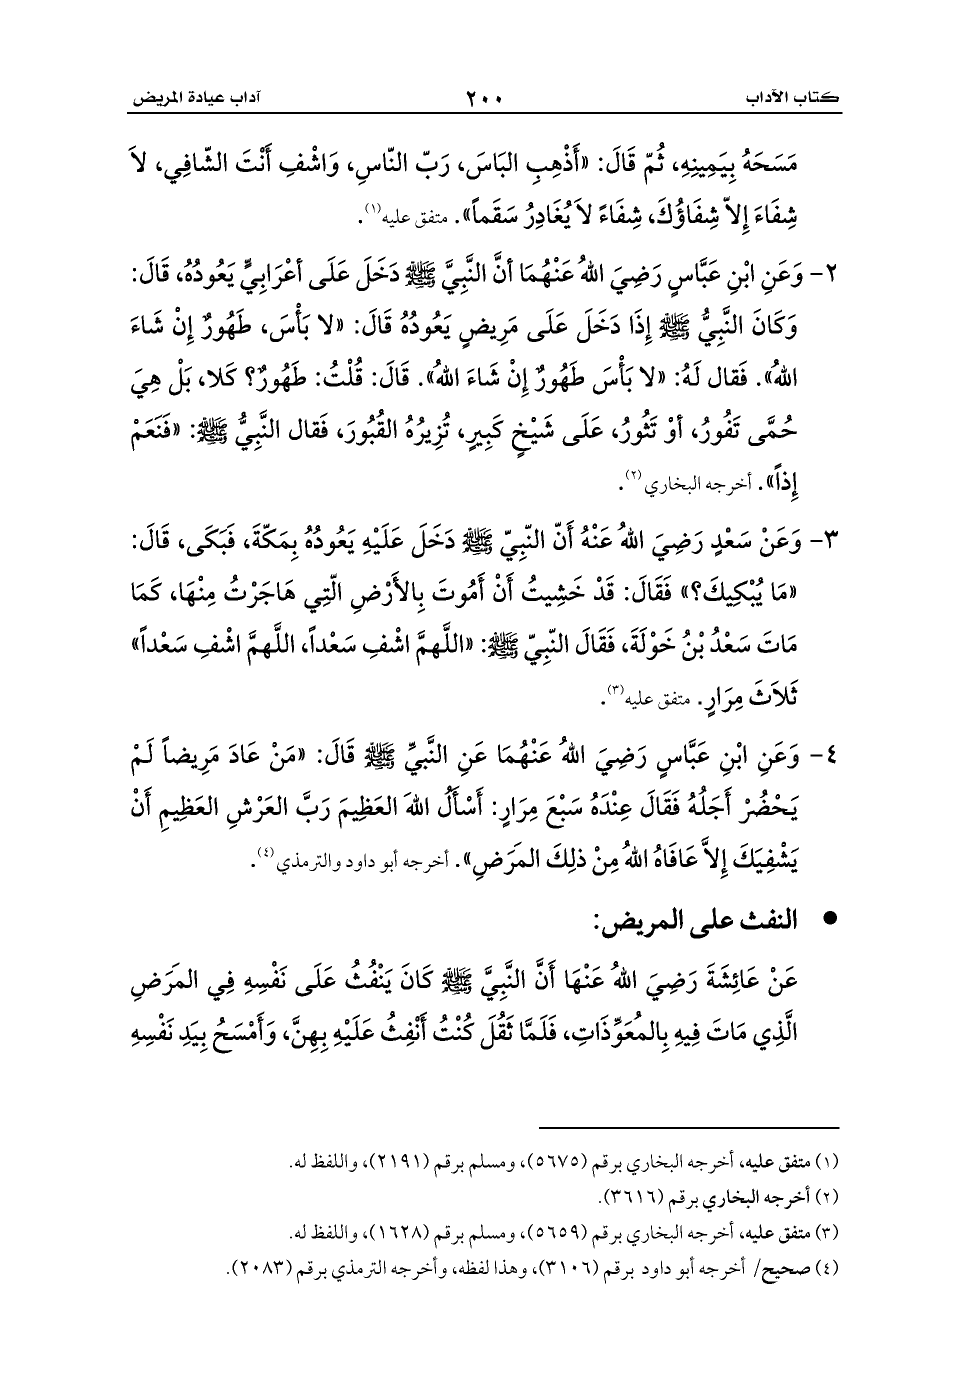 كتاب الآداب ٢٠٠ آداب عيادة المريض
مَسَحَهُ بِيَمِينِهِ، ثُمّ قَالَ: «أَذْهِبِ البَاسَ، رَبّ النّاسِ، وَاشْفِ أَنْتَ الشّافِي، لاَ
شِفَاءَ إِلاّ شِفَاؤُكَ، شِفَاءً لاَ يُغَادِرُ سَقَماً». متفق عليه(١).
٢- وَعَنِ ابْنِ عَبَّاسٍ رَضِيَ اللهُ عَنْهُمَا أنَّ النَّبِيَّ ﷺ دَخَلَ عَلَى أعْرَابِيٍّ يَعُودُهُ، قَالَ:
وَكَانَ النَّبِيُّ ﷺ إِذَا دَخَلَ عَلَى مَرِيضٍ يَعُودُهُ قَالَ: «لا بَأْسَ، طَهُورٌ إِنْ شَاءَ
اللهُ». فَقال لَهُ: «لا بَأْسَ طَهُورٌ إِنْ شَاءَ اللهُ». قَالَ: قُلْتُ: طَهُورٌ؟ كَلا، بَلْ هِيَ
حُمَّى تَفُورُ، أوْ تَثُورُ، عَلَى شَيْخٍ كَبِيرٍ، تُزِيرُهُ القُبُورَ، فَقال النَّبِيُّ ﷺ: «فَنَعَمْ
إِذاً». أخرجه البخاري(٢).
٣- وَعَنْ سَعْدٍ رَضِيَ اللهُ عَنْهُ أَنّ النّبِيّ ﷺ دَخَلَ عَلَيْهِ يَعُودُهُ بِمَكّةَ، فَبَكَى، قَالَ:
«مَا يُبْكِيكَ؟» فَقَالَ: قَدْ خَشِيتُ أَنْ أَمُوتَ بِالأَرْضِ الّتِي هَاجَرْتُ مِنْهَا، كَمَا
مَاتَ سَعْدُ بْنُ خَوْلَةَ، فَقَالَ النّبِيّ ﷺ: «اللهمَّ اشْفِ سَعْداً، اللهمَّ اشْفِ سَعْداً»
ثَلاَثَ مِرَارٍ. متفق عليه(٣).
٤- وَعَنِ ابْنِ عَبَّاسٍ رَضِيَ اللهُ عَنْهُمَا عَنِ النَّبيِّ ﷺ قَالَ: «مَنْ عَادَ مَرِيضاً لَمْ
يَحْضُرْ أَجَلُهُ فَقَالَ عِنْدَهُ سَبْعَ مِرَارٍ: أَسْأَلُ اللهَ العَظِيمَ رَبَّ العَرْشِ العَظِيمِ أَنْ
يَشْفِيَكَ إِلاَّ عَافَاهُ اللهُ مِنْ ذلِكَ المَرَضِ». أخرجه أبو داود والترمذي(٤).
● النفث على المريض:
عَنْ عَائِشَةَ رَضِيَ اللهُ عَنْهَا أَنَّ النَّبِيَّ ﷺ كَانَ يَنْفُثُ عَلَى نَفْسِهِ فِي المَرَضِ
الَّذِي مَاتَ فِيهِ بِالمُعَوِّذَاتِ، فَلَمَّا ثَقُلَ كُنْتُ أَنْفِثُ عَلَيْهِ بِهِنَّ، وَأَمْسَحُ بِيَدِ نَفْسِهِ
(١) متفق عليه، أخرجه البخاري برقم (٥٦٧٥)، ومسلم برقم (٢١٩١)، واللفظ له.
(٢) أخرجه البخاري برقم (٣٦١٦).
(٣) متفق عليه، أخرجه البخاري برقم (٥٦٥٩)، ومسلم برقم (١٦٢٨)، واللفظ له.
(٤) صحيح/ أخرجه أبو داود برقم (٣١٠٦)، وهذا لفظه، وأخرجه الترمذي برقم (٢٠٨٣).